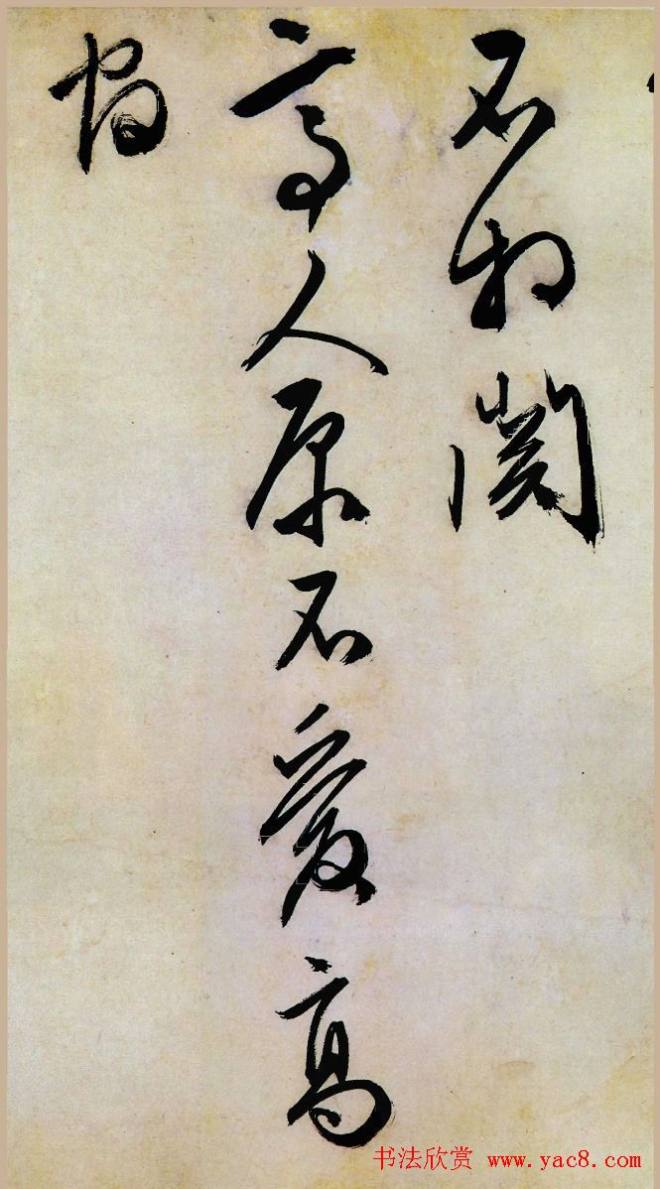 不相關
高人原不愛高
官
书法欣赏 www.yac8.com